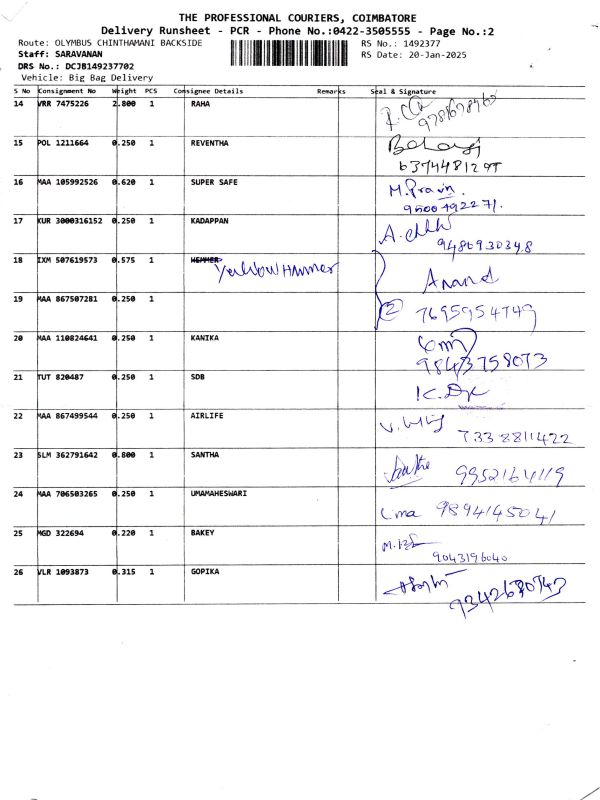 THE PROFESSIONAL COURIERS, COIMBATORE
Delivery Runsheet - PCR - Phone No.:0422-3505555 - Page No.:2
Route: OLYMBUS CHINTHAMANI BACKSIDE RS No.: 1492377
Staff: SARAVANAN RS Date: 20-Jan-2025
DRS No.: DCJB149237702
Vehicle: Big Bag Delivery
S No Consignment No Weight PCS Consignee Details Remarks Seal & Signature
14 VRR 7475226 2.800 1 RAHA
15 POL 1211664 0.250 1 REVENTHA
16 MAA 105992526 0.620 1 SUPER SAFE M. Pravin.
17 KUR 3000316152 0.250 1 KADAPPAN
9486930348
18 IXM 507619573 0.575 1 HEMMER Yellow Hammer Anand
19 MAA 867507281 0.250 1 2 7695954749
20 MAA 110824641 0.250 1 KANIKA
9843758073
21 TUT 820487 0.250 1 SDB
22 MAA 867499544 0.250 1 AIRLIFE
7338811422
23 SLM 362791642 0.800 1 SANTHA 9952164119
24 MAA 706503265 0.250 1 UMAMAHESWARI Uma 9894145041
25 MGD 322694 0.220 1 BAKEY
9043196040
26 VLR 1093873 0.315 1 GOPIKA